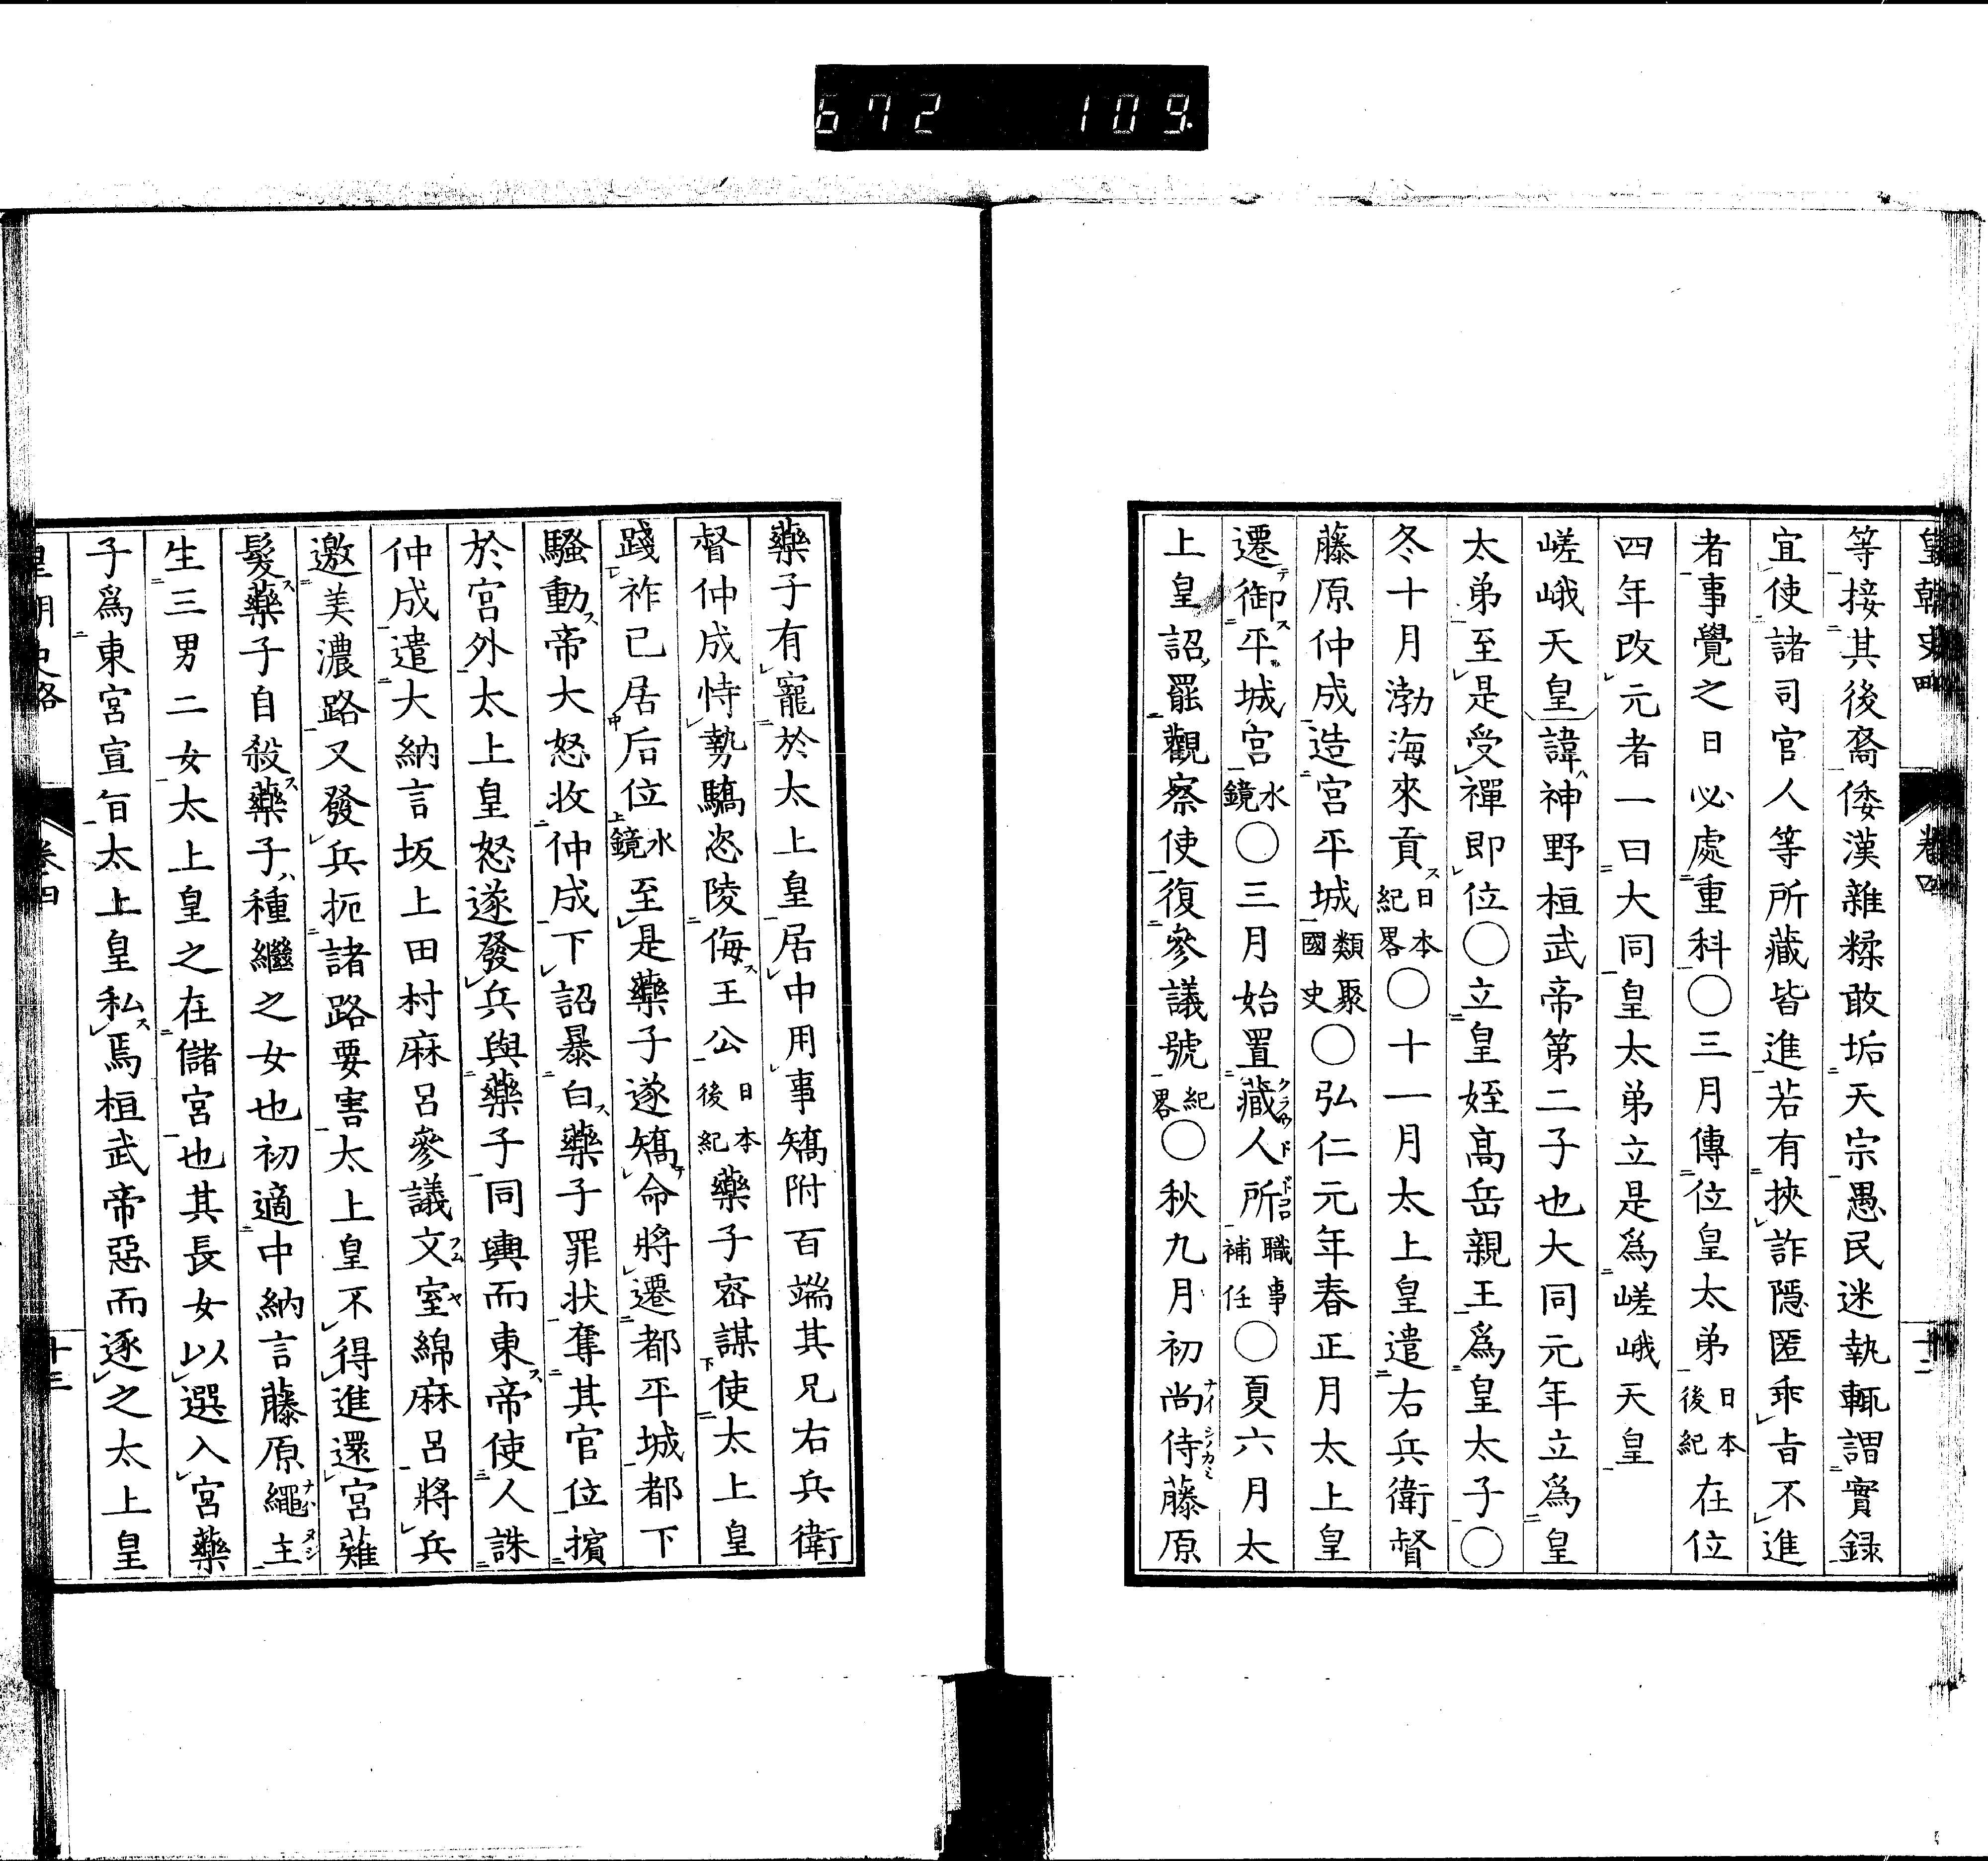 672 109.
皇朝史略 卷四 十二
等接其後裔倭漢雜糅敢垢天宗愚民迷執輒謂實録
宜使諸司官人等所藏皆進若有挾詐隱匿乖旨不進
者事覺之日必處重科○三月傳位皇太弟日本後紀在位
四年改元者一曰大同皇太弟立是爲嵯峨天皇
嵯峨天皇諱神野桓武帝第二子也大同元年立爲皇
太弟至是受禪即位○立皇姪高岳親王爲皇太子○
冬十月渤海來貢日本紀畧○十一月太上皇遣右兵衛督
藤原仲成造宮平城類聚國史○弘仁元年春正月太上皇
遷御平城宮水鏡○三月始置藏人所職事補任○夏六月太
上皇詔罷觀察使復參議號紀畧○秋九月初尚侍藤原
藥子有寵於太上皇居中用事矯附百端其兄右兵衛
督仲成恃勢驕恣陵侮王公日本後紀藥子密謀使太上皇
踐祚已居后位水鏡至是藥子遂矯命將遷都平城都下
騷動帝大怒收仲成下詔暴白藥子罪状奪其官位擯
於宮外太上皇怒遂發兵與藥子同輿而東帝使人誅
仲成遣大納言坂上田村麻呂參議文室綿麻呂將兵
邀美濃路又發兵扼諸路要害太上皇不得進還宮薙
髮藥子自殺藥子種繼之女也初適中納言藤原繩主
生三男二女太上皇之在儲宮也其長女以選入宮藥
子爲東宮宣旨太上皇私焉桓武帝惡而逐之太上皇
皇朝史略 卷四 十三